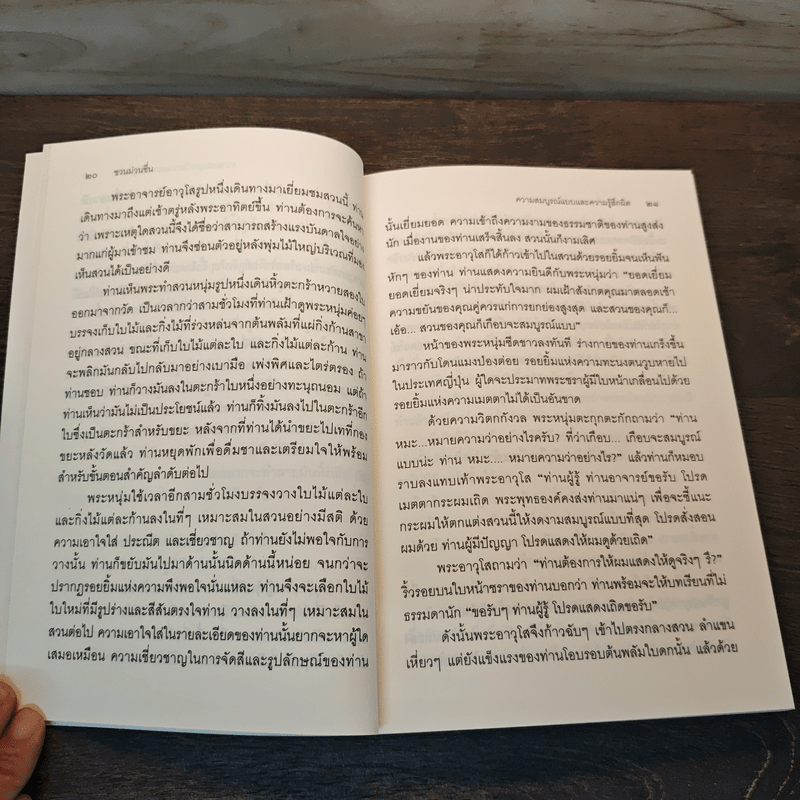 ๒๐ ชวนม่วนชื่น
พระอาจารย์อาวุโสรูปหนึ่งเดินทางมาเยี่ยมชมสวนนี้ ท่าน
เดินทางมาถึงแต่เช้าตรู่หลังพระอาทิตย์ขึ้น ท่านต้องการจะค้นหา
ว่า เพราะเหตุใดสวนนี้จึงได้ชื่อว่าสามารถสร้างแรงบันดาลใจอย่าง
มากแก่ผู้มาเข้าชม ท่านจึงซ่อนตัวอยู่หลังพุ่มไม้ใหญ่บริเวณที่มอง
เห็นสวนได้เป็นอย่างดี
ท่านเห็นพระทำสวนหนุ่มรูปหนึ่งเดินหิ้วตะกร้าหวายสองใบ
ออกมาจากวัด เป็นเวลากว่าสามชั่วโมงที่ท่านเฝ้าดูพระหนุ่มค่อยๆ
บรรจงเก็บใบไม้และกิ่งไม้ที่ร่วงหล่นจากต้นพลัมที่แผ่กิ่งก้านสาขา
อยู่กลางสวน ขณะที่เก็บใบไม้แต่ละใบ และกิ่งไม้แต่ละก้าน ท่าน
จะพลิกมันกลับไปกลับมาอย่างเบามือ เพ่งพิศและไตร่ตรอง ถ้า
ท่านชอบ ท่านก็วางมันลงในตะกร้าใบหนึ่งอย่างทะนุถนอม แต่ถ้า
ท่านเห็นว่ามันไม่เป็นประโยชน์แล้ว ท่านก็ทิ้งมันลงไปในตะกร้าอีก
ใบซึ่งเป็นตะกร้าสำหรับขยะ หลังจากที่ท่านได้นำขยะไปเทที่กอง
ขยะหลังวัดแล้ว ท่านหยุดพักเพื่อดื่มชาและเตรียมใจให้พร้อม
สำหรับขั้นตอนสำคัญลำดับต่อไป
พระหนุ่มใช้เวลาอีกสามชั่วโมงบรรจงวางใบไม้แต่ละใบ
และกิ่งไม้แต่ละก้านลงในที่ๆ เหมาะสมในสวนอย่างมีสติ ด้วย
ความเอาใจใส่ ประณีต และเชี่ยวชาญ ถ้าท่านยังไม่พอใจกับการ
วางนั้น ท่านก็ขยับมันไปมาด้านนั้นนิดด้านนี้หน่อย จนกว่าจะ
ปรากฏรอยยิ้มแห่งความพึงพอใจนั่นแหละ ท่านจึงจะเลือกใบไม้
ใบใหม่ที่มีรูปร่างและสีสันตรงใจท่าน วางลงในที่ๆ เหมาะสมใน
สวนต่อไป ความเอาใจใส่ในรายละเอียดของท่านนั้นยากจะหาผู้ใด
เสมอเหมือน ความเชี่ยวชาญในการจัดสีและรูปลักษณ์ของท่าน
ความสมบูรณ์แบบและความรู้สึกผิด ๒๑
นั้นเยี่ยมยอด ความเข้าถึงความงามของธรรมชาติของท่านสูงส่ง
นัก เมื่องานของท่านเสร็จสิ้นลง สวนนั้นก็งามเลิศ
แล้วพระอาวุโสก็ได้ก้าวเข้าไปในสวนด้วยรอยยิ้มจนเห็นฟัน
หักๆ ของท่าน ท่านแสดงความยินดีกับพระหนุ่มว่า “ยอดเยี่ยม
ยอดเยี่ยมจริงๆ น่าประทับใจมาก ผมเฝ้าสังเกตคุณมาตลอดเช้า
ความขยันของคุณคู่ควรแก่การยกย่องสูงสุด และสวนของคุณก็...
เอ้อ... สวนของคุณก็เกือบจะสมบูรณ์แบบ”
หน้าของพระหนุ่มซีดขาวลงทันที ร่างกายของท่านเกร็งขึ้น
มาราวกับโดนแมงป่องต่อย รอยยิ้มแห่งความทะนงตนวูบหายไป
ในประเทศญี่ปุ่น ผู้ใดจะประมาทพระชราผู้มีใบหน้าเกลื่อนไปด้วย
รอยยิ้มแห่งความเมตตาไม่ได้เป็นอันขาด
ด้วยความวิตกกังวล พระหนุ่มตะกุกตะกักถามว่า “ท่าน
หมะ...หมายความว่าอย่างไรครับ? ที่ว่าเกือบ... เกือบจะสมบูรณ์
แบบน่ะ ท่าน หมะ.... หมายความว่าอย่างไร?” แล้วท่านก็หมอบ
ราบลงแทบเท้าพระอาวุโส “ท่านผู้รู้ ท่านอาจารย์ขอรับ โปรด
เมตตากระผมเถิด พระพุทธองค์คงส่งท่านมาแน่ๆ เพื่อจะชี้แนะ
กระผมให้ตกแต่งสวนนี้ให้งดงามสมบูรณ์แบบที่สุด โปรดสั่งสอน
ผมด้วย ท่านผู้มีปัญญา โปรดแสดงให้ผมดูด้วยเถิด”
พระอาวุโสถามว่า “ท่านต้องการให้ผมแสดงให้ดูจริงๆ รึ?”
ริ้วรอยบนใบหน้าชราของท่านบอกว่า ท่านพร้อมจะให้บทเรียนที่ไม่
ธรรมดานัก “ขอรับๆ ท่านผู้รู้ โปรดแสดงเถิดขอรับ”
ดังนั้นพระอาวุโสจึงก้าวฉับๆ เข้าไปตรงกลางสวน ลำแขน
เหี่ยวๆ แต่ยังแข็งแรงของท่านโอบรอบต้นพลัมใบดกนั้น แล้วด้วย